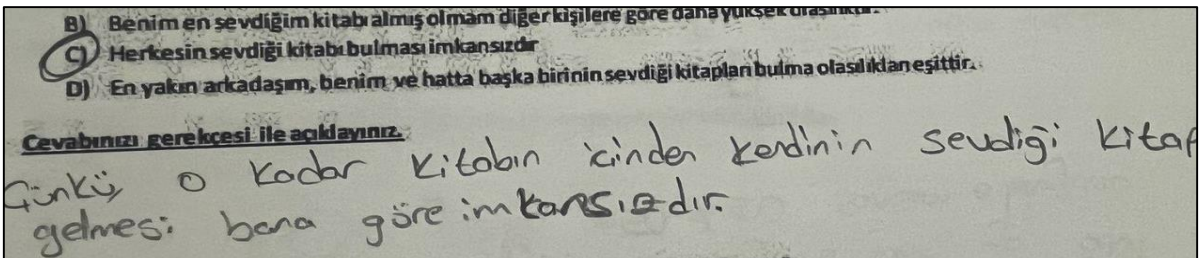 B) Benim en sevdiğim kitabı almış olmam diğer kişilere göre daha yüksek olasılıktır.
C) Herkesin sevdiği kitabı bulması imkansızdır
D) En yakın arkadaşım, benim ve hatta başka birinin sevdiği kitapları bulma olasılıkları eşittir.
Cevabınızı gerekçesi ile açıklayınız.
Çünkü, o kadar kitabın içinden kendinin sevdiği kitap
gelmesi bana göre imkansızdır.